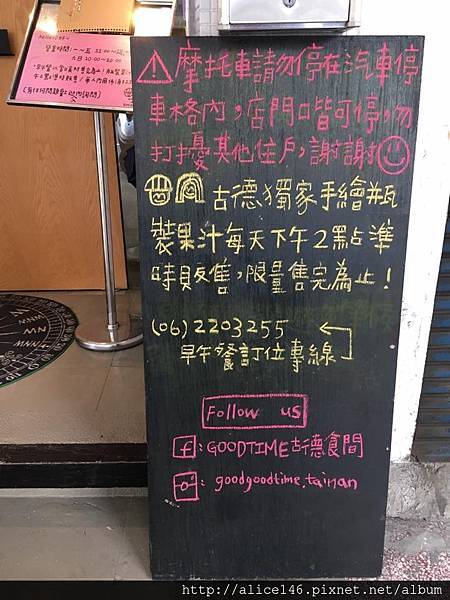 營業時間:一~五 11:00~
六日 10:00~20:00
⚠摩托車請勿停在汽車停
車格內,店門口皆可停,勿
打擾其他住戶,謝謝☺
古德獨家手繪瓶
裝果汁每天下午2點準
時販售,限量售完為止!
(06)2203255
早午餐訂位專線
Follow us
f:GOODTIME古德食間
:goodgoodtime.tainan
http://alice146.pixnet.net/album